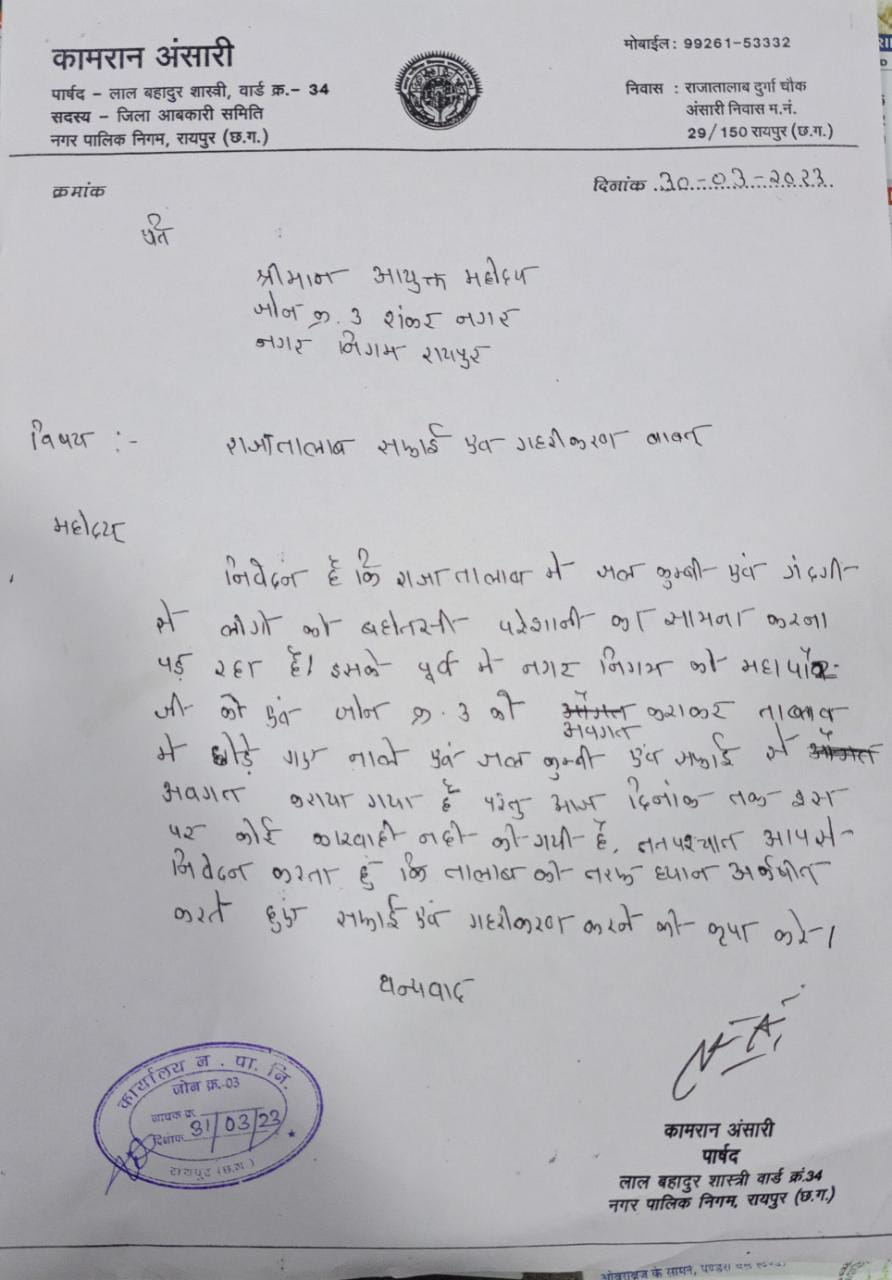 कामरान अंसारी
पार्षद – लाल बहादुर शास्त्री, वार्ड क्र.– 34
सदस्य – जिला आबकारी समिति
नगर पालिक निगम, रायपुर (छ.ग.)
मोबाईल: 99261-53332
निवास : राजातालाब दुर्गा चौक
अंसारी निवास म.नं.
29/150 रायपुर (छ.ग.)
क्रमांक
दिनांक 30-03-2023
प्रति
श्रीमान आयुक्त महोदय
जोन क्र. 3 शंकर नगर
नगर निगम रायपुर
विषय :- राजातालाब सफाई एवं गहरीकरण बाबत
महोदय
निवेदन है कि राजा तालाब मे जल कुम्बी एवं गंदगी
से लोगो को बहोतसी परेशानी का सामना करना
पड़ रहा है। इसके पूर्व मे नगर निगम को महापौर
जी को एवं जोन क्र. 3 को कराकर तालाब
अवगत
मे छोड़े गए नाले एवं जल कुम्बी एवं सफाई से
अवगत कराया गया है परंतु आज दिनांक तक इस
पर कोई कारवाही नही की गयी है, ततपश्चात आपसे
निवेदन करता हुं कि तालाब की तरफ ध्यान अर्कषीत
करते हुए सफाई एवं गहरीकरण करने की कृपा करे।
धन्यवाद
कार्यालय न. पा. नि.
जोन क्र.-03
आवक क्र.
दिनांक 31/03/23
रायपुर (छ.ग.)
कामरान अंसारी
पार्षद
लाल बहादुर शास्त्री वार्ड क्रं.34
नगर पालिक निगम, रायपुर (छ.ग.)
के सामने,